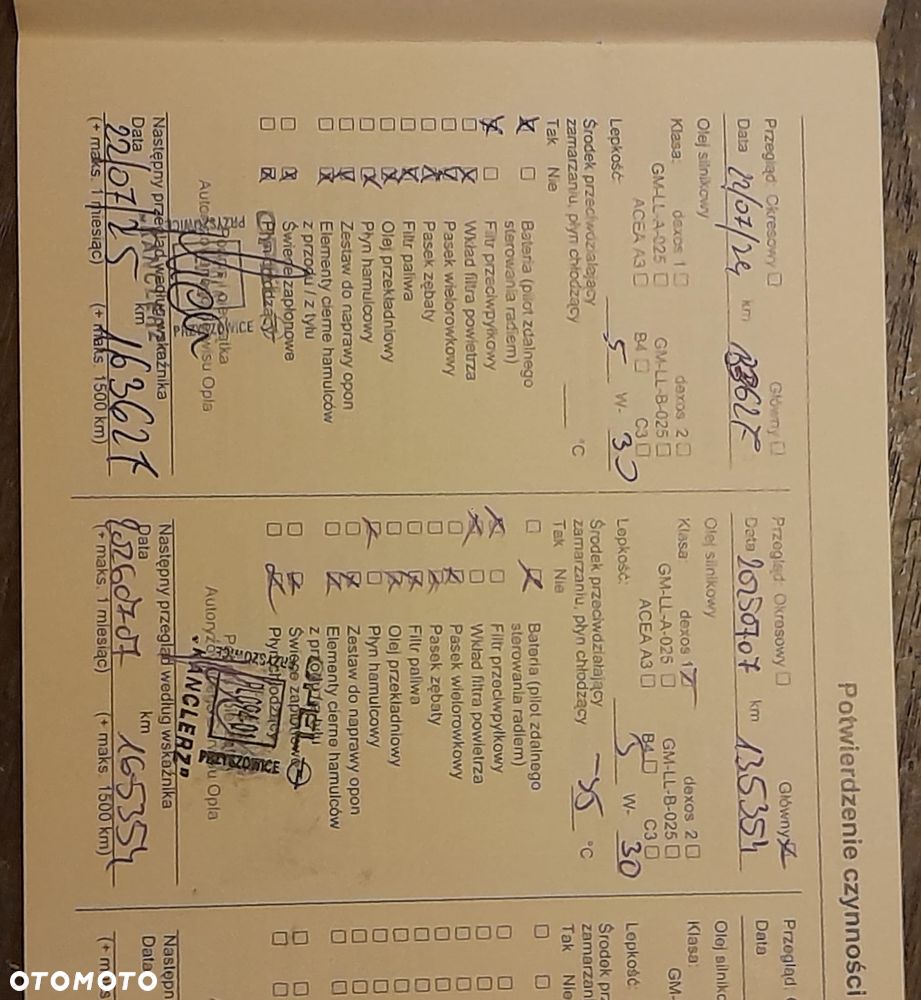 Potwierdzenie czynności
Przegląd: Okresowy Główny
Data 22/07/24 km
Olej silnikowy
Klasa: dexos 1 dexos 2
GM-LL-A-025 GM-LL-B-025
ACEA A3 B4 C3
Lepkość: 5 W- 30
Środek przeciwdziałający
zamarzaniu, płyn chłodzący °C
Tak Nie
Bateria (pilot zdalnego
sterowania radiem)
Filtr przeciwpyłkowy
Wkład filtra powietrza
Pasek wielorowkowy
Pasek zębaty
Filtr paliwa
Olej przekładniowy
Płyn hamulcowy
Zestaw do naprawy opon
Elementy cierne hamulców
z przodu / z tyłu
Świece zapłonowe
Płyn chłodzący
Następny przegląd według wskaźnika
Data 22/07/25 km 163627
(+ maks. 1 miesiąc) (+ maks. 1500 km)
Przegląd: Okresowy Główny
Data 20250707 km 135354
Olej silnikowy
Klasa: dexos 1 dexos 2
GM-LL-A-025 GM-LL-B-025
ACEA A3 B4 C3
Lepkość: 5 W- 30
Środek przeciwdziałający
zamarzaniu, płyn chłodzący -35 °C
Tak Nie
Bateria (pilot zdalnego
sterowania radiem)
Filtr przeciwpyłkowy
Wkład filtra powietrza
Pasek wielorowkowy
Pasek zębaty
Filtr paliwa
Olej przekładniowy
Płyn hamulcowy
Zestaw do naprawy opon
Elementy cierne hamulców
Świece zapłonowe
Płyn chłodzący
PRZYSZOWICE
"KANCLERZ"
Następny przegląd według wskaźnika
Data 20260707 km 165354
(+ maks. 1 miesiąc) (+ maks. 1500 km)
Przegląd:
Data
Olej silniko
Klasa:
GM-
Lepkość:
Środek prz
zamarzani
Tak Nie
Następn
Data
(+ maks
OTOMOTO